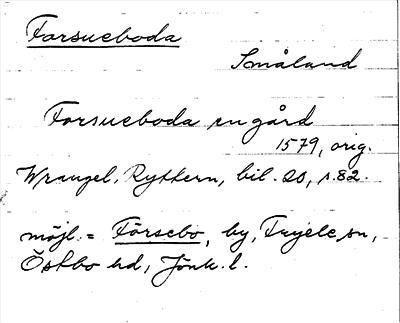 Forsueboda
Småland
Forsueboda en gård
1579, orig.
Wrangel, Ryttern, bil. 20, s. 82.
möjl. = Försebo, by, Fryele sn,
Östbo hd, Jönk. l.